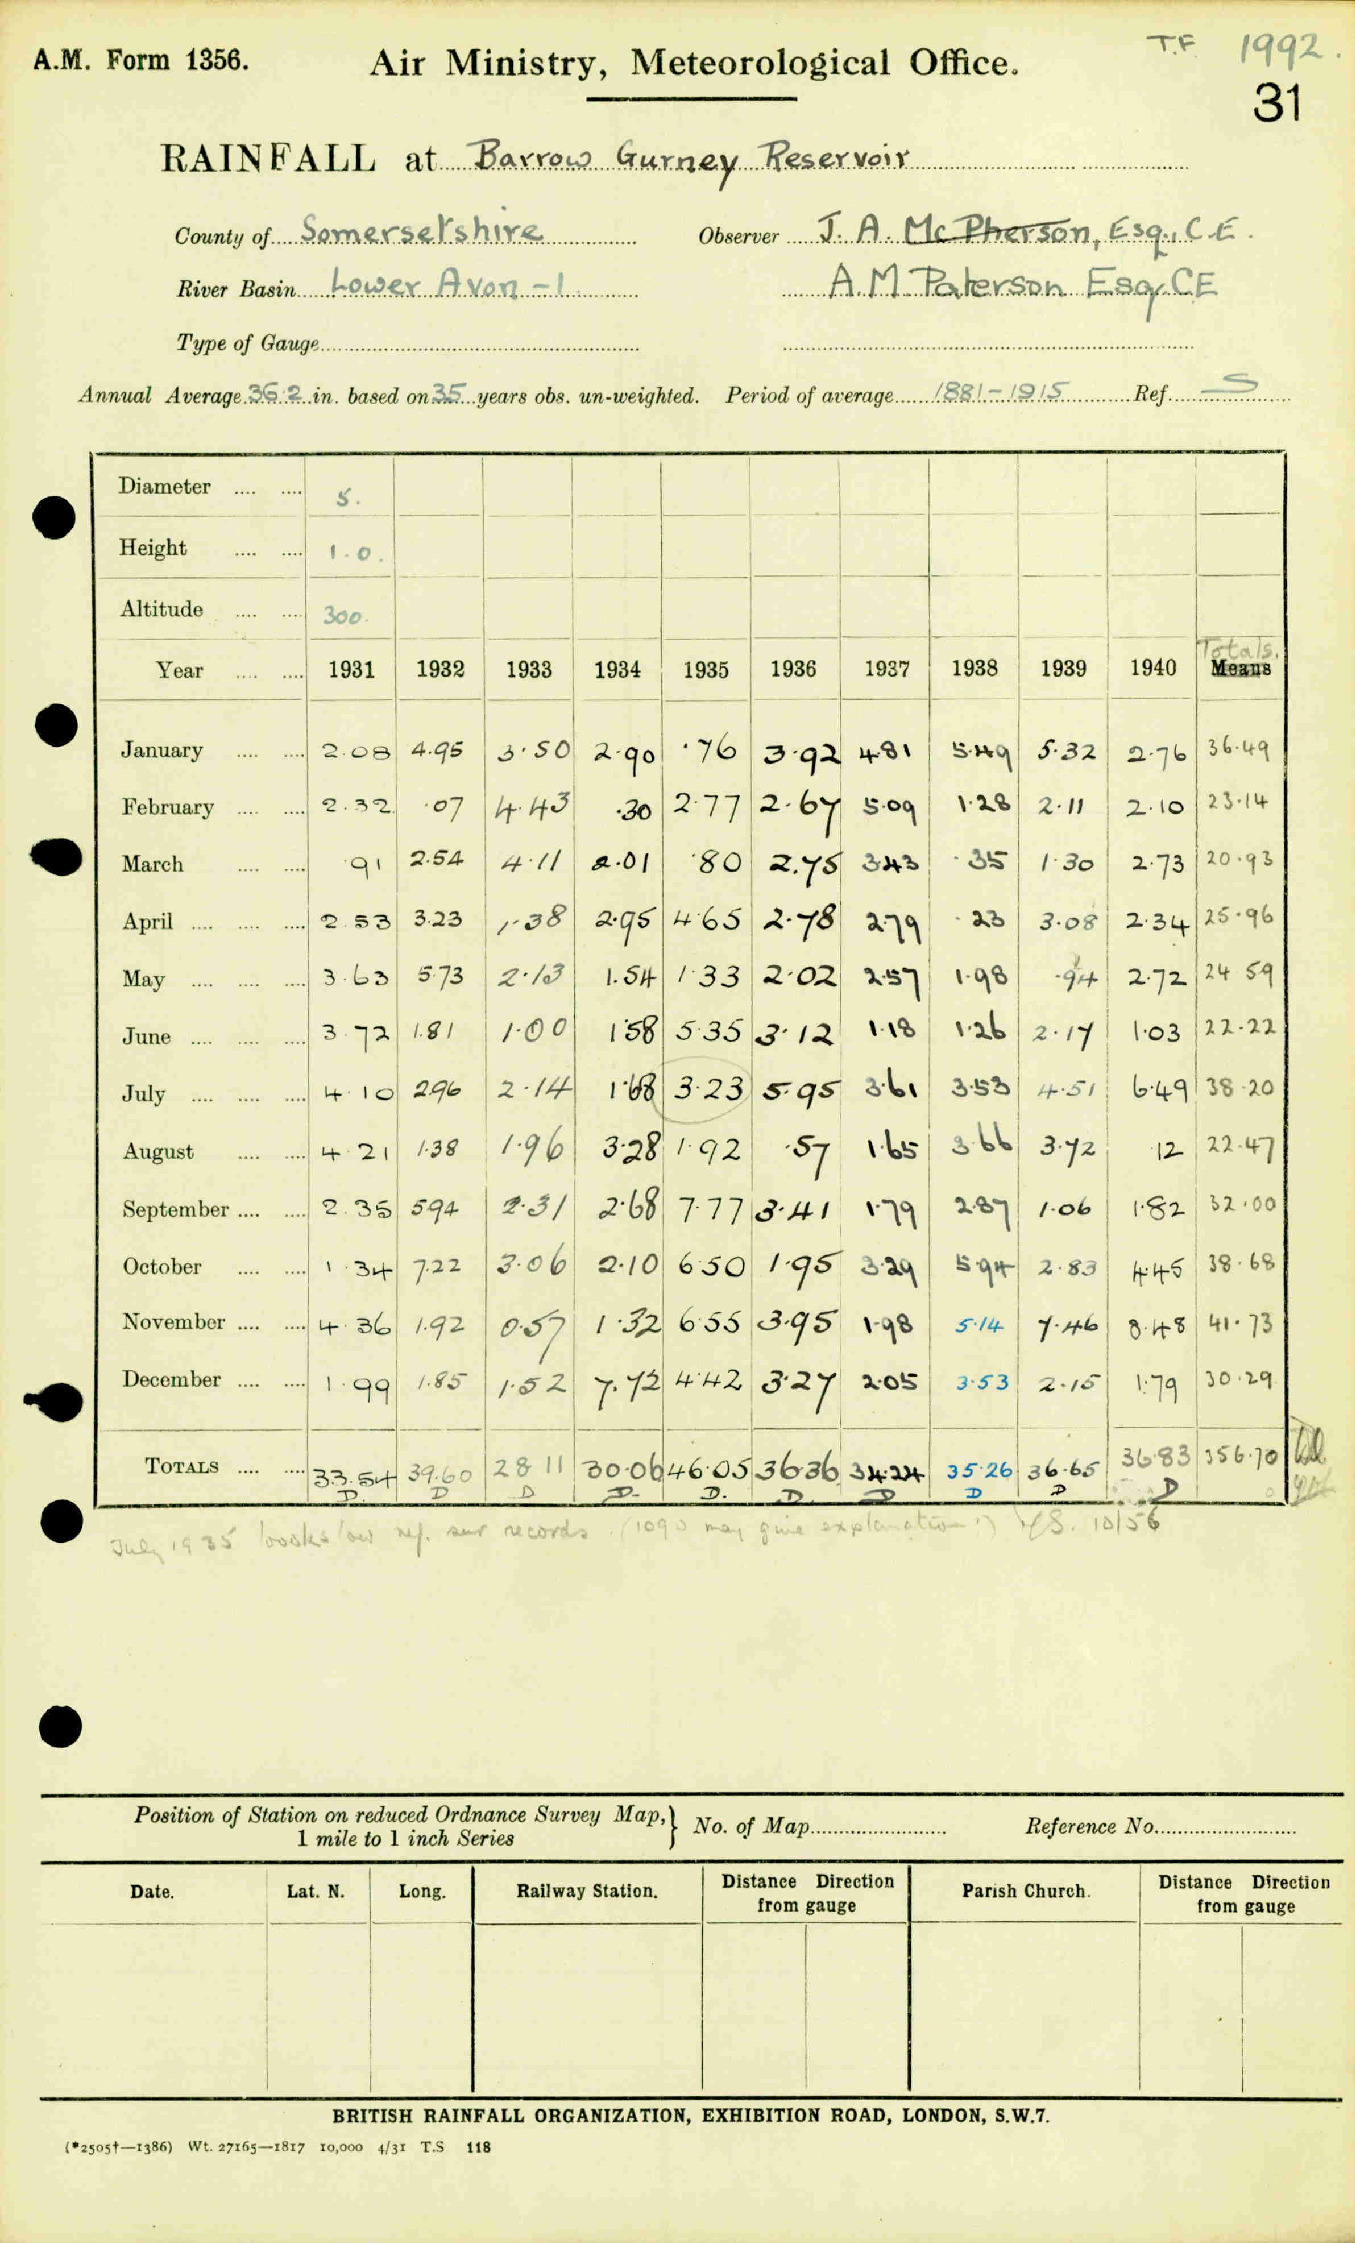 A.M. Form 1356. Air Ministry, Meteorological Office. T.F. 1992.
31
RAINFALL at Barrow Gurney Reservoir
County of Somersetshire Observer J. A. McPherson, Esq., C.E.
River Basin Lower Avon -1 A.M. Paterson Esq. CE
Type of Gauge
Annual Average 36.2 in. based on 35 years obs. un-weighted. Period of average 1881-1915 Ref. S
Diameter 5.
Height 1.0.
Altitude 300.
Totals.
Year 1931 1932 1933 1934 1935 1936 1937 1938 1939 1940 Means
January 2.08 4.95 3.50 2.90 .76 3.92 4.81 5.49 5.32 2.76 36.49
February 2.32 .07 4.43 .30 2.77 2.67 5.09 1.28 2.11 2.10 23.14
March .91 2.54 4.11 2.01 .80 2.75 3.43 .35 1.30 2.73 20.93
April 2.53 3.23 1.38 2.95 4.65 2.78 2.79 .23 3.08 2.34 25.96
May 3.63 5.73 2.13 1.54 1.33 2.02 2.57 1.98 .94 2.72 24 59
June 3.72 1.81 1.00 1.58 5.35 3.12 1.18 1.26 2.17 1.03 22.22
July 4.10 2.96 2.14 1.68 3.23 5.95 3.61 3.53 4.51 6.49 38.20
August 4.21 1.38 1.96 3.28 1.92 .57 1.65 3.66 3.72 .12 22.47
September 2.35 5.94 2.31 2.68 7.77 3.41 1.79 2.87 1.06 1.82 32.00
October 1.34 7.22 3.06 2.10 6.50 1.95 3.29 5.94 2.83 4.45 38.68
November 4.36 1.92 0.57 1.32 6.55 3.95 1.98 5.14 7.46 8.48 41.73
December 1.99 1.85 1.52 7.72 4.42 3.27 2.05 3.53 2.15 1.79 30.29
TOTALS 33.54 39.60 28 11 30.06 46.05 36.36 34.24 35.26 36.65 36.83 356.70
D. D D D. D. D. D D D D
July 1935 looks low ref. sur records. (1090 may give explanation!) 10/56
Position of Station on reduced Ordnance Survey Map,} No. of Map Reference No.
1 mile to 1 inch Series
Date. Lat. N. Long. Railway Station. Distance Direction from gauge Parish Church. Distance Direction from gauge
BRITISH RAINFALL ORGANIZATION, EXHIBITION ROAD, LONDON, S.W.7.
(*2505†—1386) Wt. 27165—1817 10,000 4/31 T.S 118